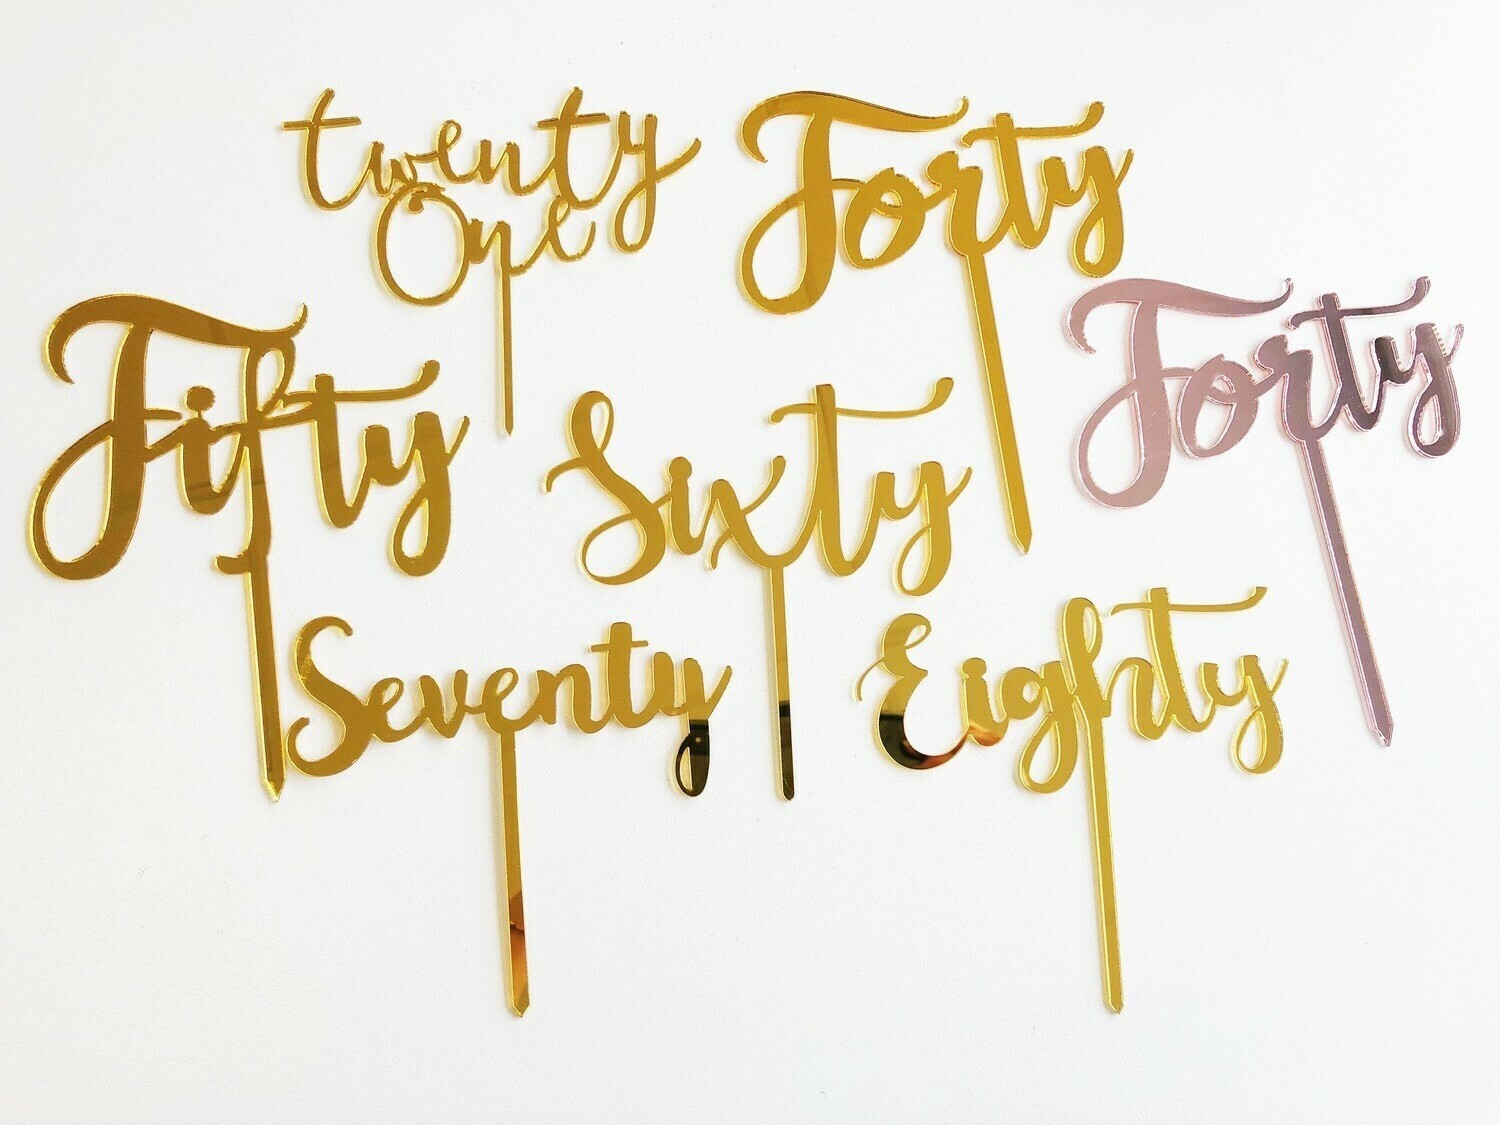 twenty
One
Forty
Forty
Fifty
Sixty
Seventy
Eighty